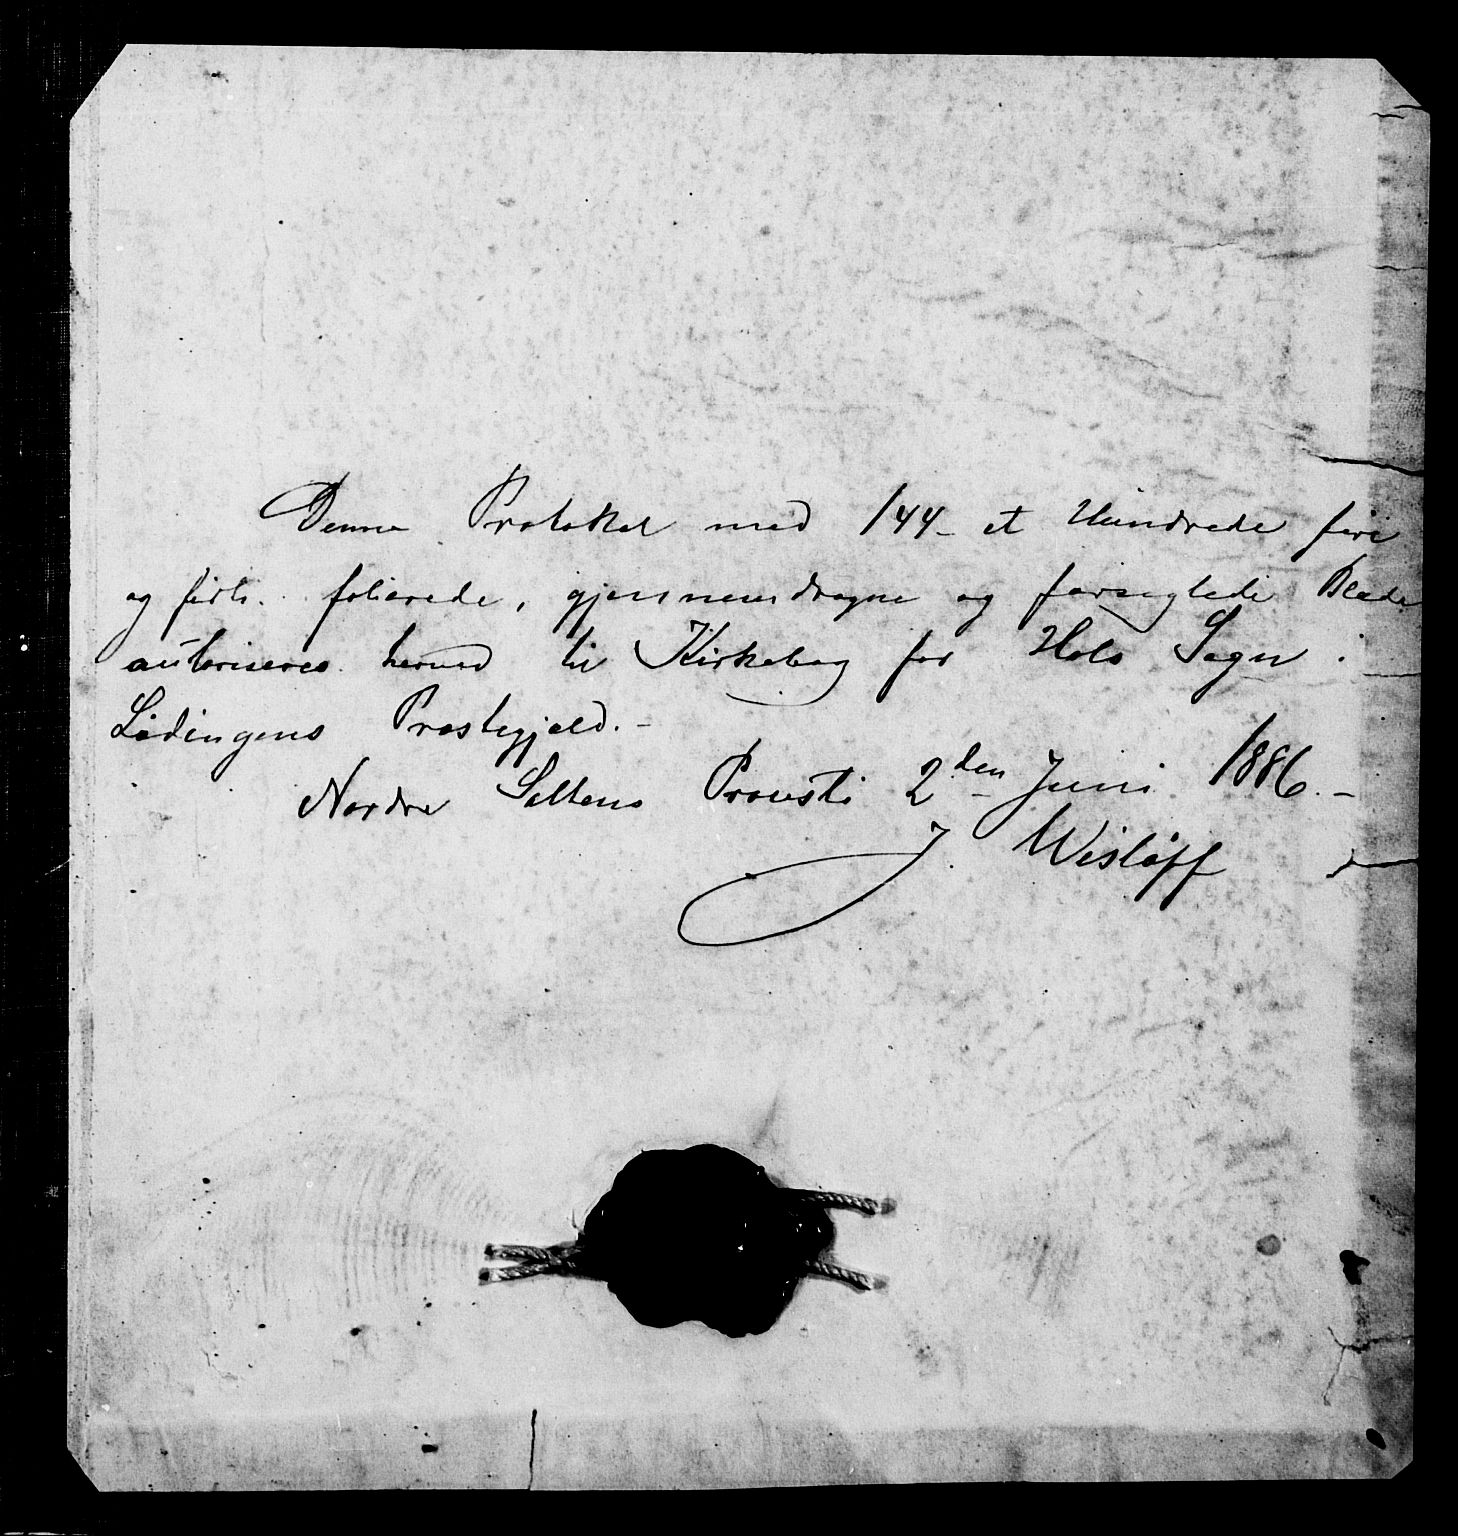 Denne Protokol med 144 - et Hundrede fire
og firti folierede, gjennemdragne og forseglede Blade
autoriseres herved til Kirkebog for Hols Sogn i
Lødingens Præstegjæld. -
Nordre Saltens Provsti 2den Juni 1886. -
J. Wisløff